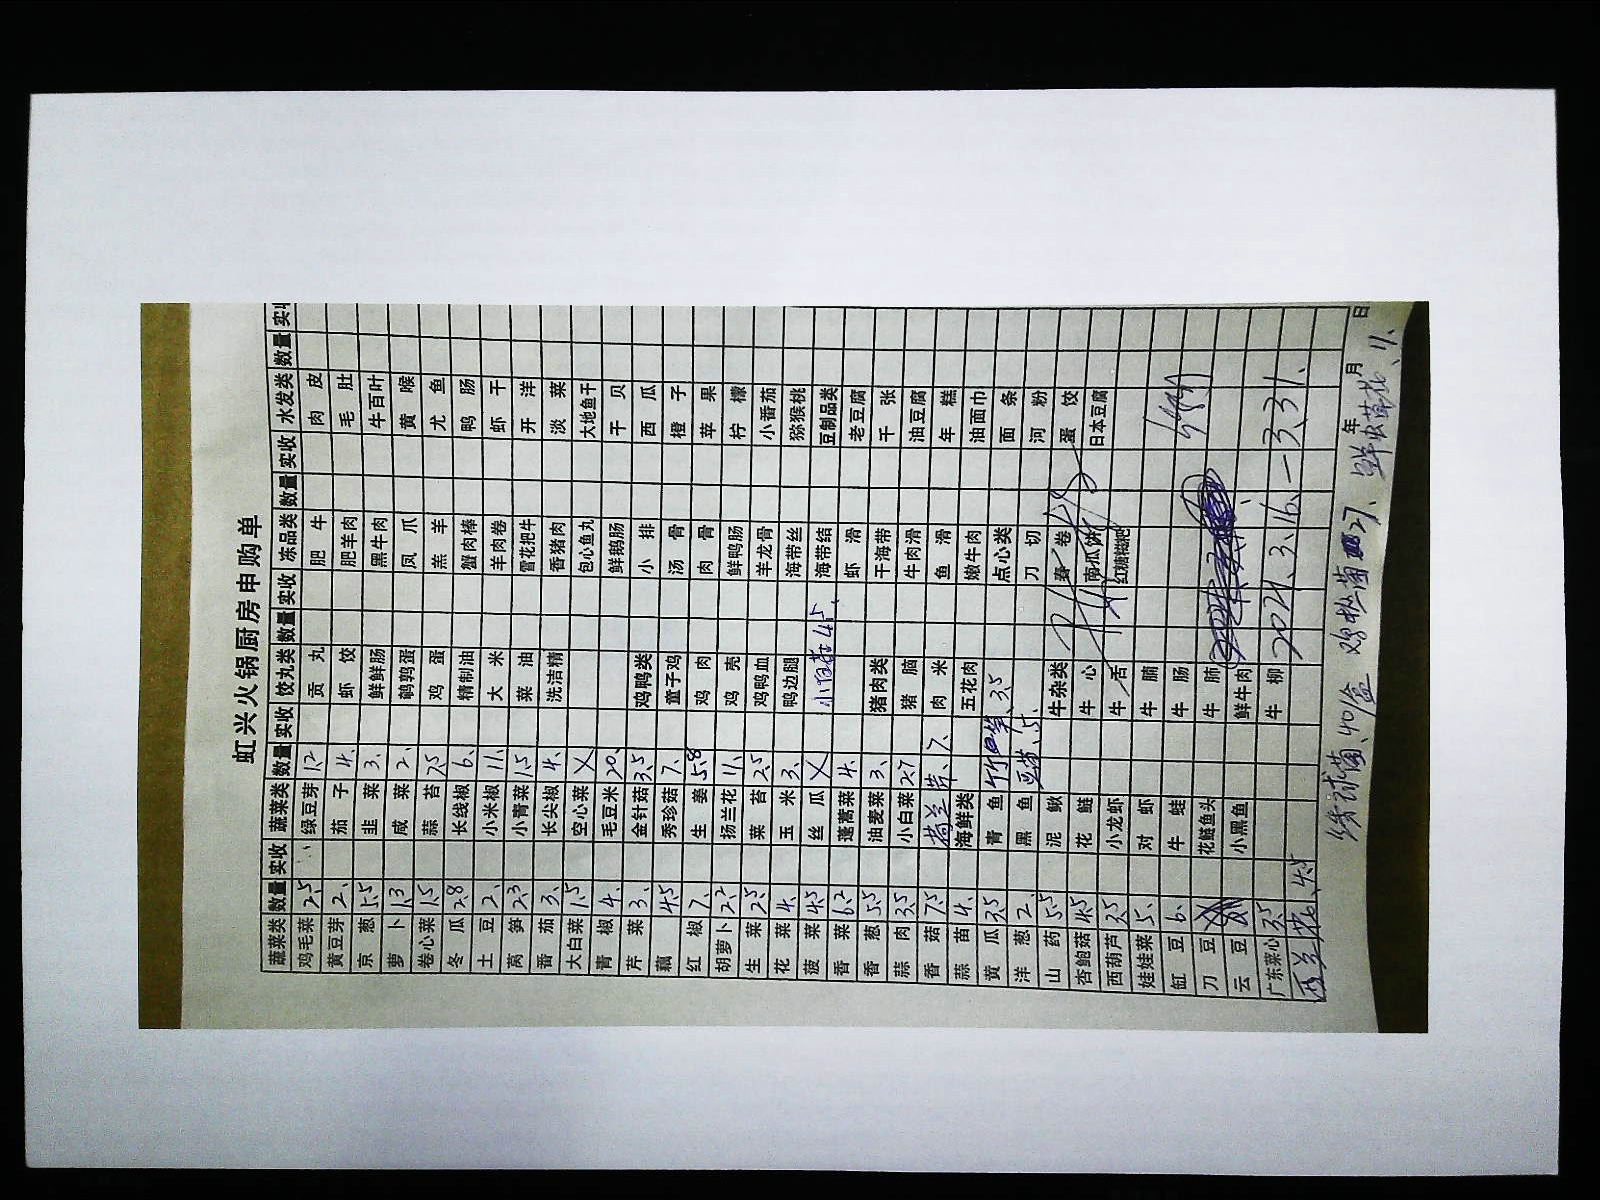 虹兴火锅厨房申购单
蔬菜类 数量 实收 蔬菜类 数量 实收 饺丸类 数量 实收 冻品类 数量 实收 水发类 数量 实收
鸡毛菜 2.5 绿豆芽 12 贡丸 肥牛 肉皮
黄豆芽 2、 茄子 4、 虾饺 肥羊肉 毛肚
京葱 1.5 韭菜 3、 鲜鲜肠 黑牛肉 牛百叶
萝卜 1.3 咸菜 2、 鹌鹑蛋 凤爪 黄喉
卷心菜 1.5 蒜苔 7.5 鸡蛋 羔羊 尤鱼
冬瓜 2.8 长线椒 6、 精制油 蟹肉棒 鸭肠
土豆 2、 小米椒 11、 大米 羊肉卷 虾干
莴笋 2.3 小青菜 1.5 菜油 雪花把牛 开洋
番茄 3、 长尖椒 4、 洗洁精 香猪肉 淡菜
大白菜 1.5 空心菜 X 包心鱼丸 大地鱼干
青椒 4、 毛豆米 20、 鲜鹅肠 干贝
芹菜 3、 金针菇 3.5 鸡鸭类 小排 西瓜
藕 4.5 秀珍菇 7、 童子鸡 汤骨 橙子
红椒 7、 生姜 5.8 鸡肉 肉骨 苹果
胡萝卜 2.2 扬兰花 11、 鸡壳 鲜鸭肠 柠檬
生菜 2.5 菜苔 2.5 鸡鸭血 羊龙骨 小番茄
花菜 4、 玉米 3、 鸭边腿 海带丝 猕猴桃
菠菜 4.5 丝瓜 X 海带结 豆制品类
香菜 6.2 蓬蒿菜 4、 虾滑 老豆腐
香葱 5.5 油麦菜 3、 猪肉类 干海带 千张
蒜肉 3.5 小白菜 2.7 猪脑 牛肉滑 油豆腐
香菇 7.5 荷兰芹、7、 肉米 鱼滑 年糕
蒜苗 4、 海鲜类 五花肉 嫩牛肉 油面巾
黄瓜 3.5 青鱼 3.5 点心类 面条
洋葱 2、 黑鱼 豆苗、5、 刀切 河粉
山药 5.5 泥鳅 牛杂类 春卷 蛋饺
杏鲍菇 4.5 花鲢 牛心 南瓜饼 日本豆腐
西葫芦 3.5 小龙虾 牛舌 红糖糍粑
娃娃菜 5、 对虾 牛腩
缸豆 6、 牛蛙 牛肠
刀豆 花鲢鱼头 牛肺
云豆 小黑鱼 鲜牛肉
广东菜心 3.5 牛柳 2021、3、16、—3、31、
西兰花、4.5
年 月 日
绣球菌、40/盒 鸡枞菌 27、 鲜虫草花、11、